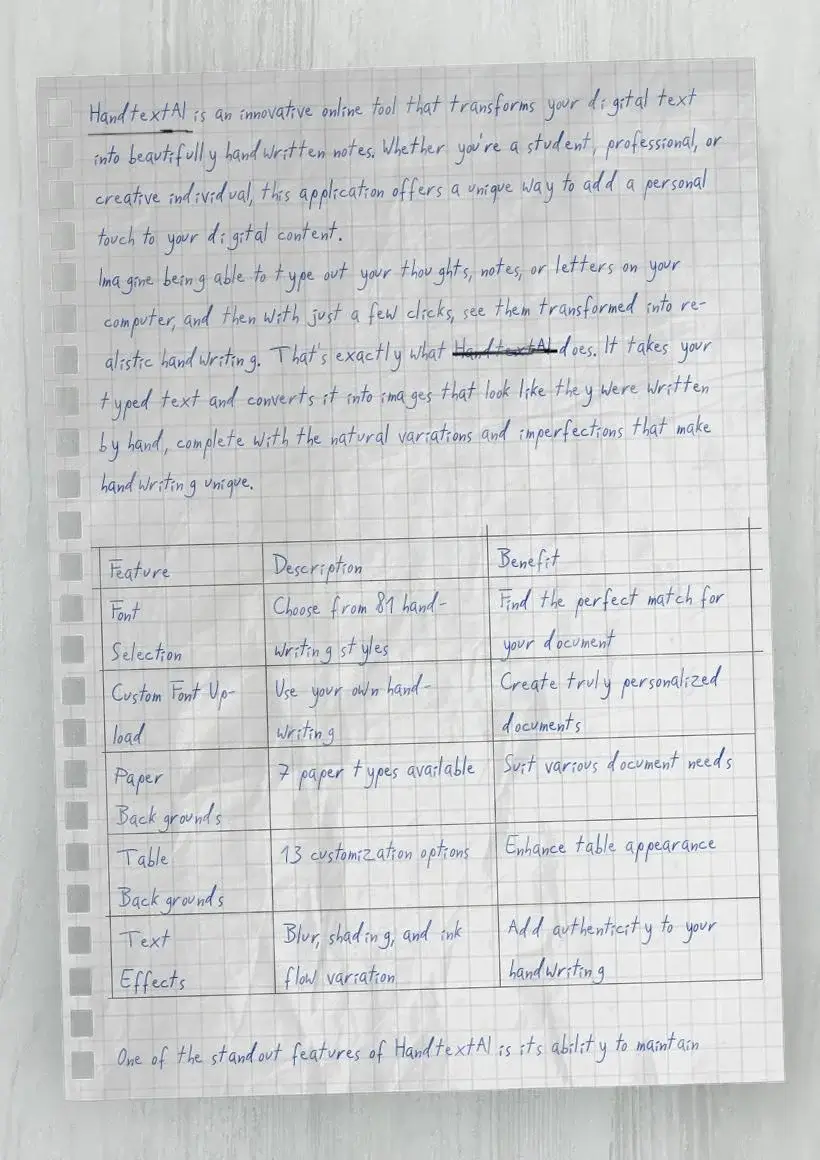 HandtextAI is an innovative online tool that transforms your digital text
into beautifully handwritten notes. Whether you're a student, professional, or
creative individual, this application offers a unique way to add a personal
touch to your digital content.
Imagine being able to type out your thoughts, notes, or letters on your
computer, and then with just a few clicks, see them transformed into re-
alistic handwriting. That's exactly what HandtextAI does. It takes your
typed text and converts it into images that look like they were written
by hand, complete with the natural variations and imperfections that make
handwriting unique.
Feature Description Benefit
Font Choose from 81 hand- Find the perfect match for
Selection writing styles your document
Custom Font Up- Use your own hand- Create truly personalized
load writing documents
Paper 7 paper types available Suit various document needs
Backgrounds
Table 13 customization options Enhance table appearance
Backgrounds
Text Blur, shading, and ink Add authenticity to your
Effects flow variation handwriting
One of the standout features of HandtextAI is its ability to maintain